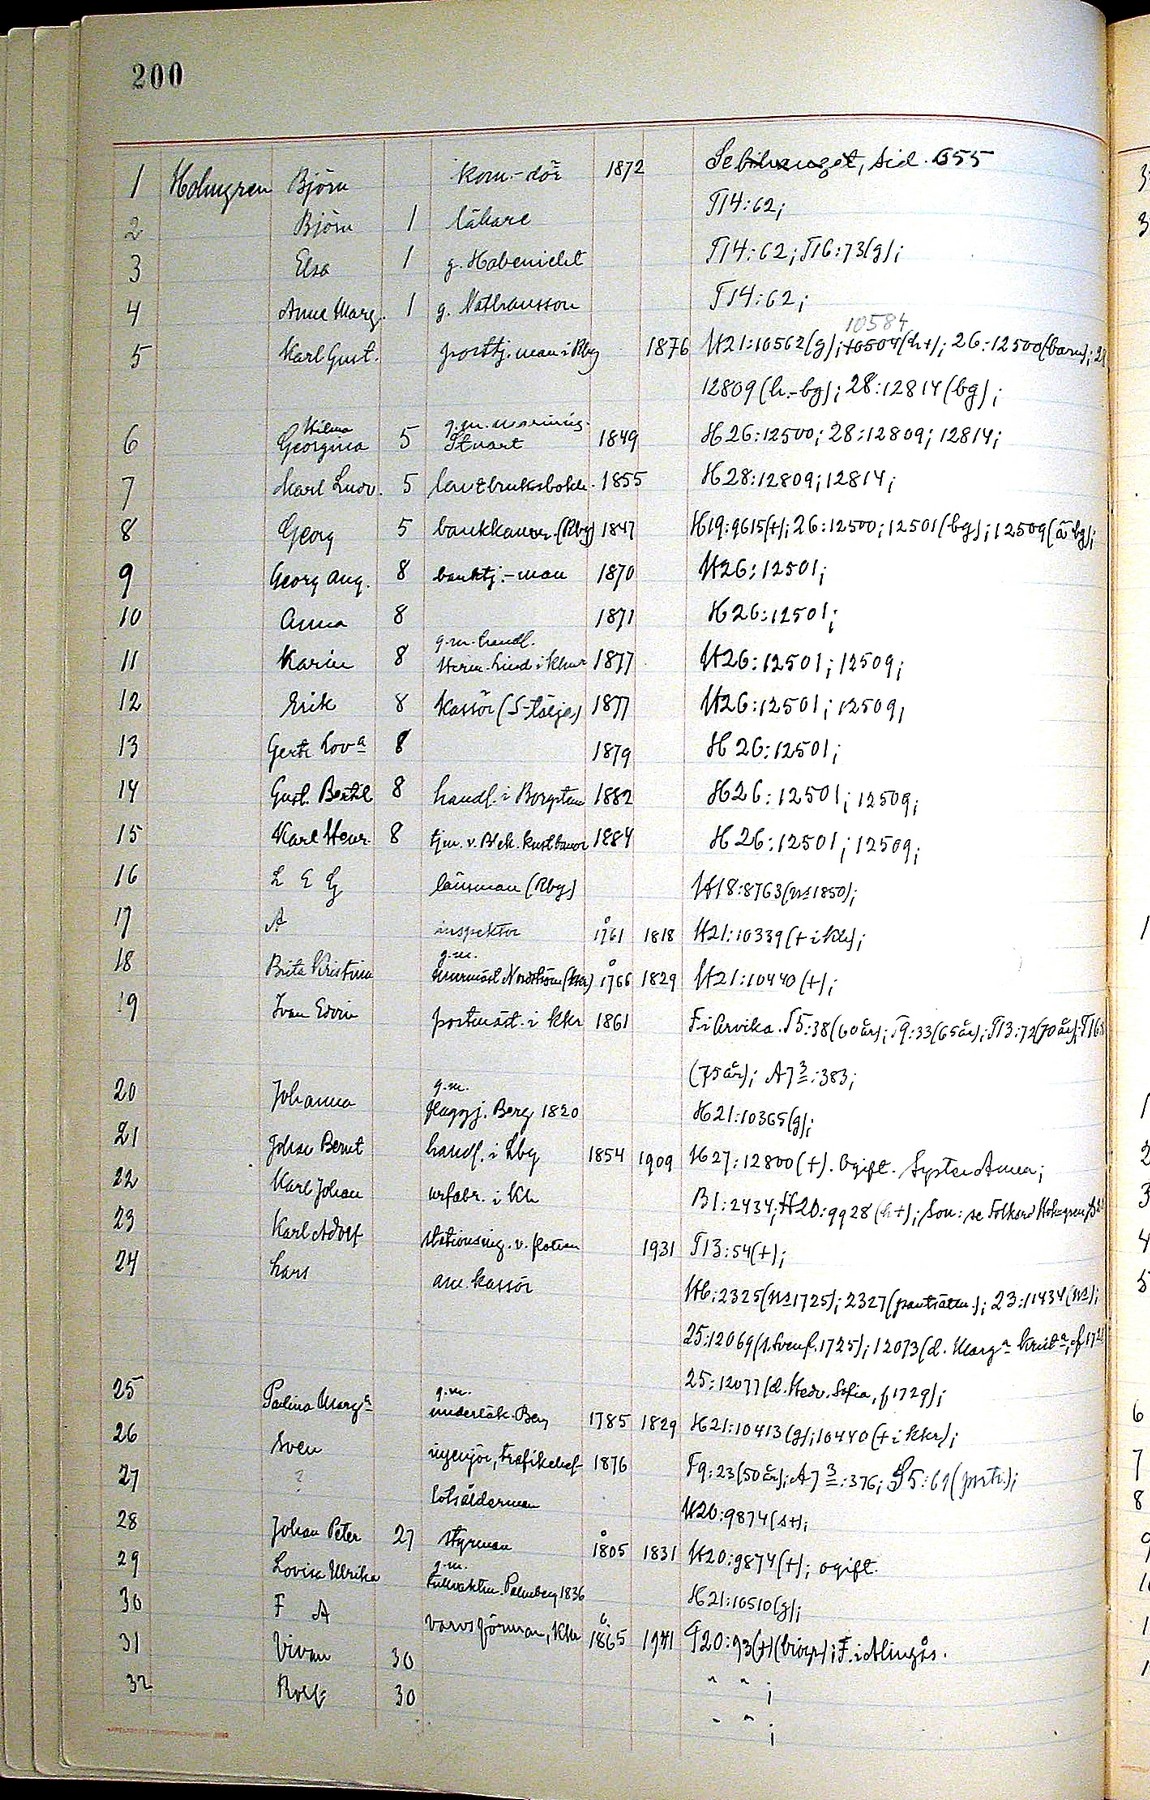 200
1 Holmgren Björn kom.-dör 1872 Se bihanget, sid. 655
2 Björn 1 läkare T14:62;
3 Elsa 1 g. Habenicht T14:62; T16:73(g);
4 Anna Marg. 1 g. Nathansson T14:62;
10584
5 Karl Gust. posttj.man i Rby 1876 H21:10562(g); 10504(h+); 26:12500(barn); 28
12809(h.-bg); 28:12814(bg);
Wilma g.m. marining.
6 Georgina 5 Stuart 1849 H26:12500; 28:12809; 12814;
7 Karl Ludv. 5 lantbruksbokh. 1855 H28:12809; 12814;
8 Georg 5 bankkamr. (Rby) 1847 H19:9615(+); 26:12500; 12501(bg); 12509(ä bg);
9 Georg Aug. 8 banktj.-man 1870 H26:12501;
10 Anna 8 1871 H26:12501;
g.m. handl.
11 Karin 8 Herm. Lind i Khmr 1877 H26:12501; 12509;
12 Erik 8 kassör (S-tälje) 1877 H26:12501; 12509;
13 Gertr Lova 8 1879 H26:12501;
14 Gust. Bertil 8 handl. i Borgstena 1882 H26:12501; 12509;
15 Karl Henr. 8 tjm. v. Blek. kustbanor 1884 H26:12501; 12509;
16 L E G länsman (Rby) H18:8763(ns 1850);
17 A inspektor 1761 1818 H21:10339(+ i kkr);
g.m.
18 Brita Kristina murmäst Nordström (kkr) 1766 1829 H21:10440(+);
19 Ivan Edvin postmäst. i kkr 1861 F. i Arvika. T5:38(60 år); T9:33(65 år); T13:72(70 år); T16:
(75 år); A7 3:383;
g.m.
20 Johanna flaggj. Berg 1820 H21:10365(g);
21 Johan Bernt handl. i Lby 1854 1909 H27:12800(+). Ogift. Syster Anna;
22 Karl Johan urfabr. i Kh B1:2434; H20:9928(h+); Son: se Folkard Holmgren,
23 Karl Adolf stationsing. v. flottan 1931 T13:54(+);
24 Lars am. kassör H6:2325(ns 1725); 2327(panträtten); 23:11434(ns);
25:12069(s. Sven f. 1725); 12073(d. Marga Krista, f 172
25:12077(d. Hedv. Sofia, f 1729);
g.m.
25 Paulina Marga underläk. Berg 1785 1829 H21:10413(g); 10440(+ i kkr);
26 Sven ingenjör, trafikchef 1876 F9:23(50 år); A7 3:376; S5:61(portr.);
27 ? lotsålderman H20:9874(s+);
28 Johan Peter 27 styrman 1805 1831 H20:9874(+); ogift.
g.m.
29 Lovisa Ulrika tullvaktm. Palmberg 1836 H21:10510(g);
30 F A varvsförman, Kkr 1865 1941 T20:93(+)(biogr); F. i Alingsås.
31 Vivan 30 " " ;
32 Rolf 30 " " ;